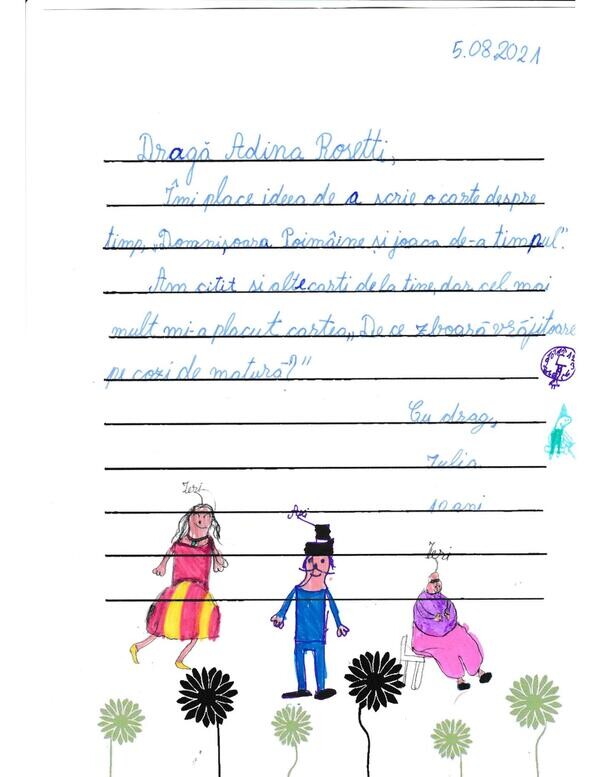 5.08.2021
Dragă Adina Rosetti,
Îmi place ideea de a scrie o carte despre
timp, „Domnișoara Poimâine și joaca de-a timpul".
Am citit si alte carti de la tine, dar cel mai
mult mi-a placut cartea „De ce zboară vrăjitoare
pe cozi de matură?"
Cu drag,
Iulia
10 ani
Ieri
Azi
Ieri